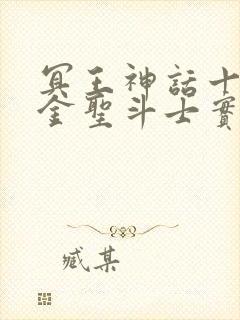 冥王神話十
金聖斗士實
臧某